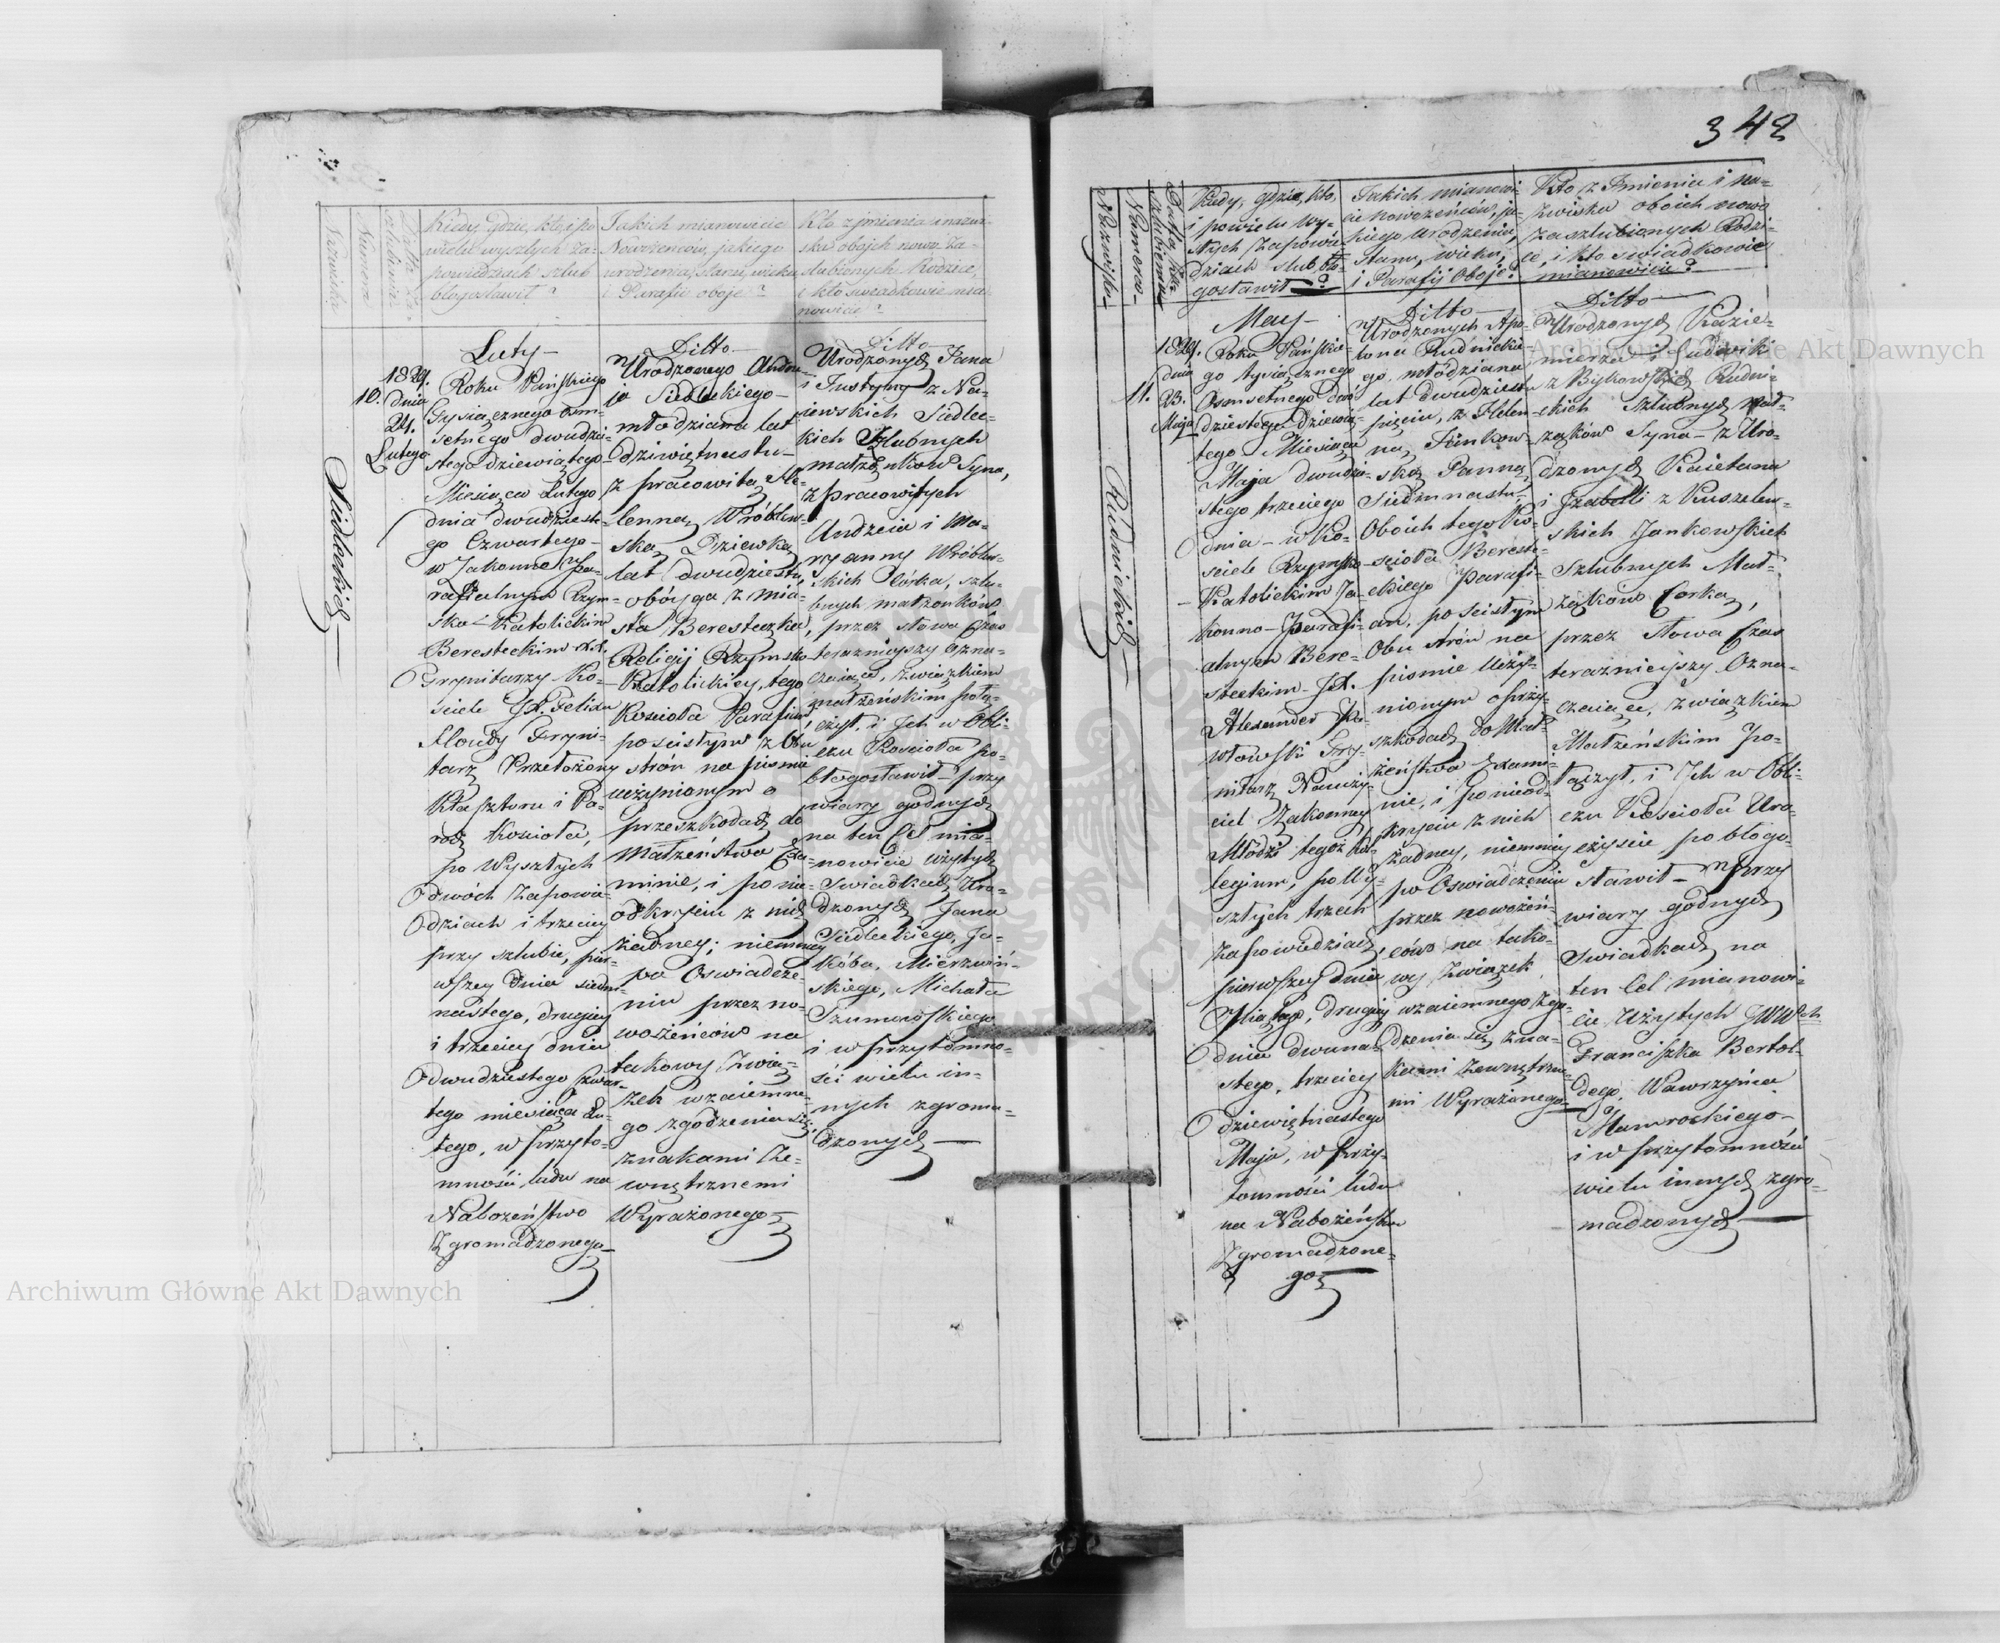 342
Nazwiska
Numera
Data szlubienia
Kiedy, gdzie, kto, i po
wielu wyszłych Za-
powiedziach szlub
błogosławił?
Jakich mianowicie
Nowożeńców, jakiego
urodzenia, stanu, wieku
i Parafii oboje?
Kto z imienia i nazwi-
ska obojch nowo Za-
ślubionych Rodzice,
i kto świadkowie mia-
nowicie?
Siedleckich
10.
1829.
dnia
24.
Lutego
Luty
Roku Pańskiego
Tysiącznego ośm-
setnego dwudzie-
stego dziewiątego
Miesiąca Lutego
dnia dwudzieste-
go Czwartego
w Zakonno Pa-
rafialnym Rzym-
sko-Katolickim
Beresteckim XX.
Trynitarzy Ko-
ściele JX. Felix
Trymi-
tarz Przełożony
Klasztoru i Pa-
roch Kościoła,
po Wyszłych
dwóch Zapowie-
dziach i trzeciej
przy szlubie, pier-
wszey dnia siedm-
nastego, drugiey
i trzeciey dnia
dwudziestego czwar-
tego miesiąca Lu-
tego, w przyto-
mności ludu na
Nabożeństwo
Zgromadzonego
Ditto
Urodzonego Andrze-
ja Siedleckiego
młodziana lat
dziewiętnastu
z pracowitą He-
lenną Wróblew-
ską Dziewką
lat dwudziestu,
obóyga z mia-
sta Beresteczka,
Religij Rzymsko
Katolickiey, tego
Kościoła Parafian,
po ścisłym z Obu
stron na piśmie
uczynionym o
przeszkodach do
Małżeństwa Exa-
minie, i po nie-
odkryciu z nich
żadney; niemniey
po Oświadcze-
niu przez no-
wożeńców na
takowy Zwią-
zek wzaiemne-
go zgodzenia się
znakami Ze-
wnętrznemi
Wyrażonego
Ditto
Urodzonych Jana
i Justyny z Na-
iewskich Siedlec-
kich Szlubnych
małżonków Syna,
z Pracowitych
Andzeia i Ma-
ryanny Wróblew-
skich Córką, szlu-
bnych małżonków
przez słowa Czas
teraznieyszy Ozna-
czaiące, związkiem
małżeńskim połą-
czył, i Ich w Obli-
czu Kościoła po-
błogosławił przy
wiary godnych
na ten Cel mia-
nowicie użytych
Swiadkach Uro-
dzonych Jana
Siedleckiego, Ja-
kóba Mierzwiń-
skiego, Michała
Szumowskiego
i w przytomno-
ści wielu in-
nych zgroma-
dzonych
Nazwiska
Numera
Kiedy, gdzie, kto,
i po wielu Wy-
szłych Zapowie-
dziach slub, bło-
gosławił?
Jakich mianowi-
cie nowożeńców, ja-
kiego urodzenia,
stanu, wieku,
i Parafij Oboje?
Kto z Imienia i na-
zwiska oboich nowo
Zaszlubionych Rodzi-
ce, i kto swiadkowie
mianowicie?
Rudnickich
11.
1829.
dnia
23.
Maja
May
Roku Pańskie-
go tysiącznego
Osmsetnego dwu-
dziestego dziewią-
tego Miesiąca
Maja dwudzie-
stego trzeciego
dnia w Ko-
ściele Rzymsko-
Katolickim Za-
konno Parafi-
alnym Bere-
steckim JX.
Alexander Pa-
włowski Try-
nitarz Nauczy-
ciel Zakonney
Młódzi tegoż Kol-
legium, po Wy-
szłych trzech
zapowiedziach,
pierwszey dnia
Piątego, drugiey
dnia dwuna-
stego, trzeciey
dziewiętnastego
Maja, w przy-
tomności ludu
na Nabożeństwo
Zgromadzone-
go
Ditto
Urodzonych Apo-
lona Rudnickie-
go, młodziana
lat dwudziestu
pięciu, z Helen-
ną Jankow-
ską Panną,
Siedmnastu,
Oboich tego Ko-
ścioła Bereste-
ckiego Parafi-
an, po ścisłym
Obu stron na
piśmie uczy-
nionym o prze-
szkodach do Mał-
żeństwa Exami-
nie, i po nieod-
kryciu z nich
żadney, niemniey
po Oświadczeniu
przez nowożeń-
ców na tako-
wy Związek
wzaiemnego Zgo-
dzenia się zna-
kami Zewnętrzne-
mi Wyrażonego
Ditto
Urodzonych Kazie-
mierza i Ludwiki
z Bykowskich Rudni-
ckich Szlubnych Mał-
żąków Syna z Uro-
dzonych Kaietana
i Izabelli z Kuszelew-
skich Jankowskich
Szlubnych Mał-
żąków Corką,
przez słowa Czas
teraznieyszy Ozna-
czaiące, związkiem
Małżeńskim Po-
łączył, i Ich w Obli-
czu Kościoła Uro-
czyscie pobłogo-
sławił przy
wiary godnych
Swiadkach na
ten Cel mianowi-
cie Użytych JWWch
Franciszka Bertol-
dego, Wawrzyńca
Mamrockiego
i w przytomności
wielu innych zgro-
madzonych
Archiwum Główne Akt Dawnych
Archiwum Główne Akt Dawnych